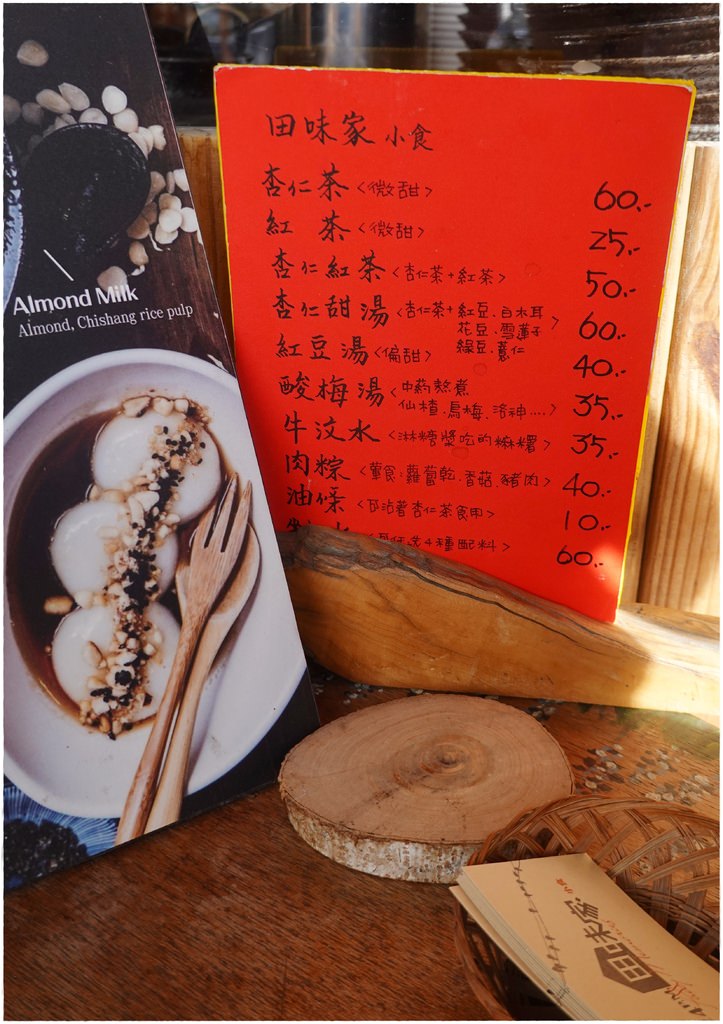 Almond Milk
Almond, Chishang rice pulp
田味家 小食
杏仁茶 <微甜> 60.-
紅 茶 <微甜> 25.-
杏仁紅茶 <杏仁茶+紅茶> 50.-
杏仁甜湯 <杏仁茶+紅豆、白木耳 60.-
花豆、雪蓮子>
綠豆、薏仁
紅豆湯 <偏甜> 40.-
酸梅湯 <中葯熬煮 35.-
仙楂、烏梅、洛神....>
牛汶水 <淋糖漿吃的麻糬> 35.-
肉粽 <葷食:蘿蔔乾、香菇、豬肉> 40.-
油條 <可沾著杏仁茶食用> 10.-
任选4種配料> 60.-
田味家
小食